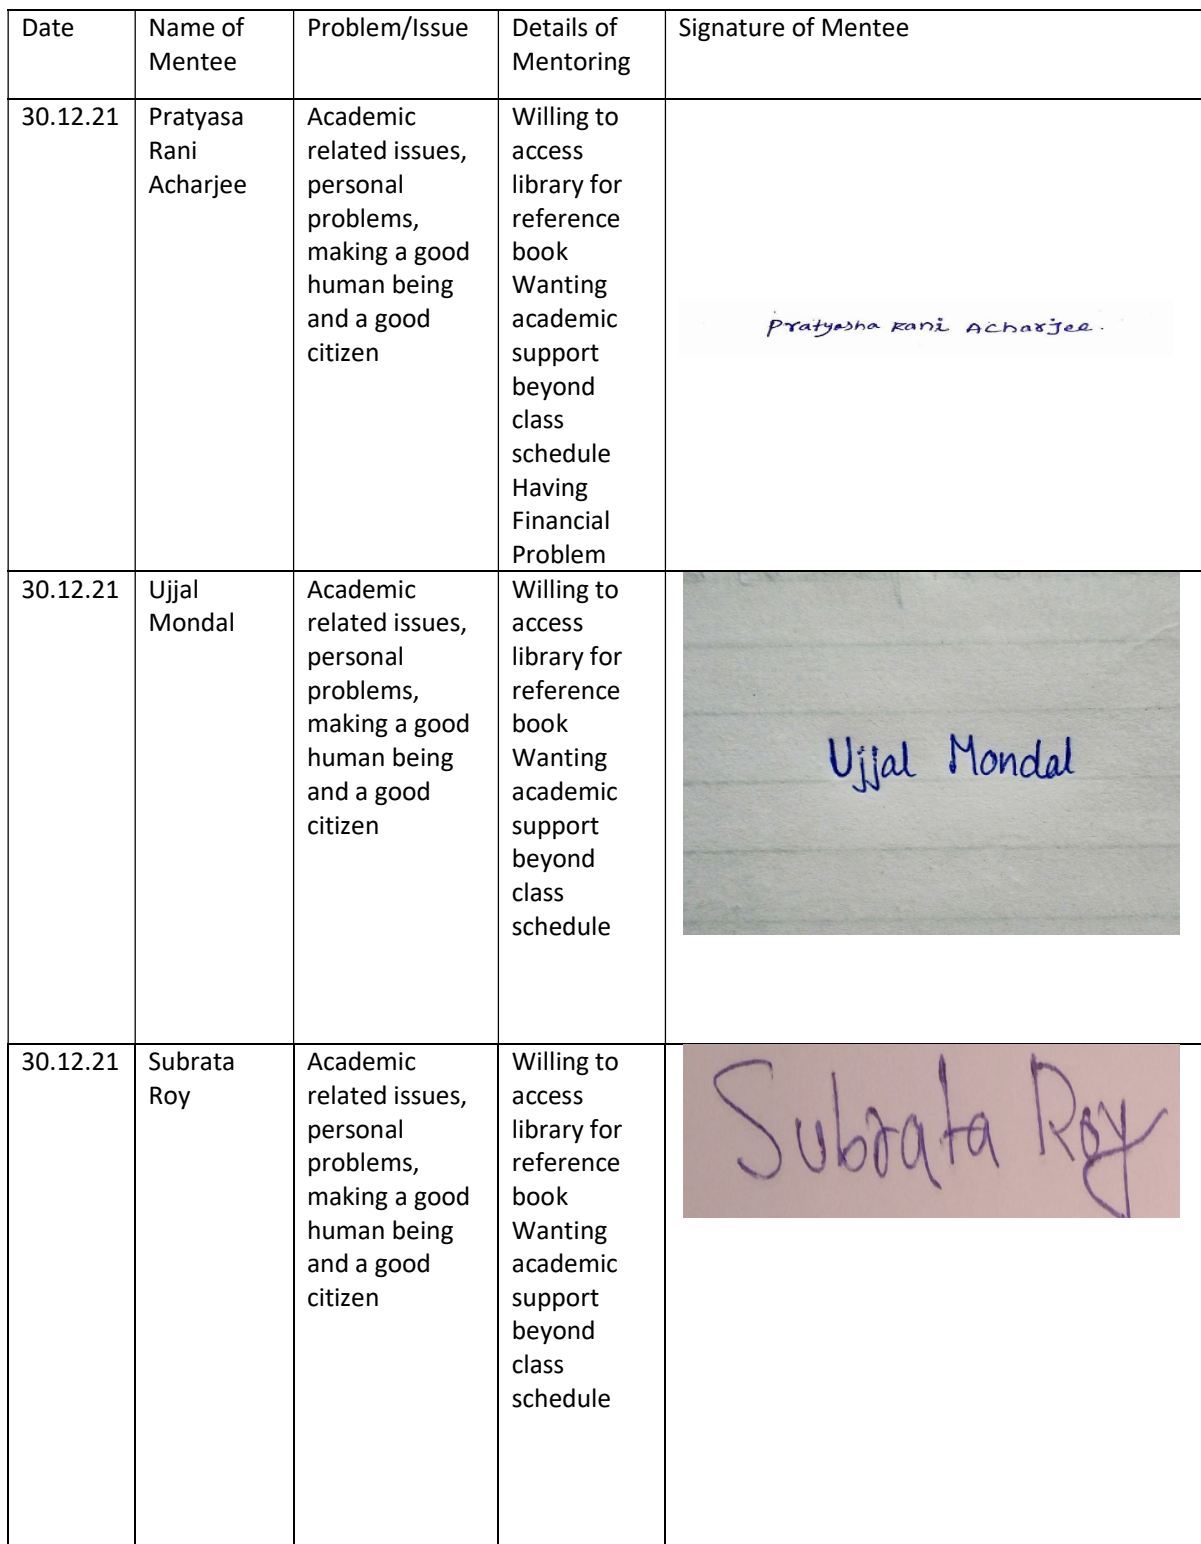 Date
Name of
Mentee
Problem/Issue
Details of
Mentoring
Signature of Mentee
30.12.21
Pratyasa
Rani
Acharjee
Academic
related issues,
personal
problems,
making a good
human being
and a good
citizen
Willing to
access
library for
reference
book
Wanting
academic
support
beyond
class
schedule
Having
Financial
Problem
Pratyasha Rani Acharjee.
30.12.21
Ujjal
Mondal
Academic
related issues,
personal
problems,
making a good
human being
and a good
citizen
Willing to
access
library for
reference
book
Wanting
academic
support
beyond
class
schedule
Ujjal Mondal
30.12.21
Subrata
Roy
Academic
related issues,
personal
problems,
making a good
human being
and a good
citizen
Willing to
access
library for
reference
book
Wanting
academic
support
beyond
class
schedule
Subrata Roy